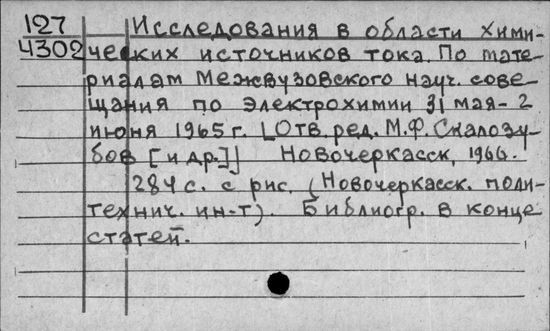 127 Исследования в области хими-
4302 ческих источников тока. По мате-
риалам Межвузовского науч. сове-
щания по электрохимии 31 мая-2
июня 1965 г. [Отв. ред. М.Ф. Скалозу-
бов [и др.]] Новочеркасск, 1966.
284 с. с рис. (Новочеркасск. поли-
технич. ин-т). Библиогр. в конце
статей.